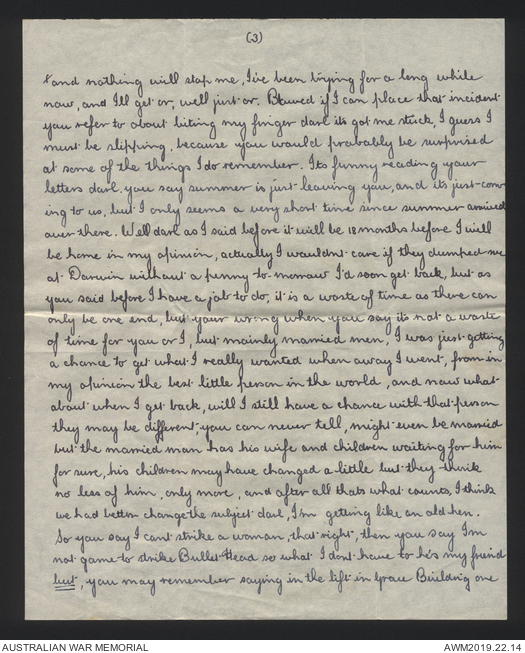 (3)
& and nothing will stop me, I've been trying for a long while
now, and I'll get or, well just or. Blowed if I can place that incident
you refer to about biting my finger darl its got me stuck, I guess I
must be slipping, because you would probably be surprised
at some of the things I do remember. Its funny reading your
letters darl, you say summer is just leaving you, and its just com-
ing to us, but I only seems a very short time since summer arrived
over there. Well darl as I said before it will be 18 months before I will
be home in my opinion, actually I wouldn't care if they dumped me
at Darwin without a penny to-morrow I'd soon get back, but as
you said before I have a job to do, it is a waste of time as there can
only be one end, but your wrong when you say its not a waste
of time for you or I, but mainly married men, I was just getting
a chance to get what I really wanted when away I went, from in
my opinion the best little person in the world, and now what
about when I get back, will I still have a chance with that person
they may be different, you can never tell, might even be married
but the married man has his wife and children waiting for him
for sure, his children may have changed a little but they think
no less of him, only more, and after all thats what counts, I think
we had better change the subject darl, I'm getting like an old hen.
So you say I cant strike a woman, that right, then you say I'm
not game to strike Bullet Head so what I dont have to he's my friend
but, you may remember saying in the lift in Grace Building one
AUSTRALIAN WAR MEMORIAL
AWM2019.22.14